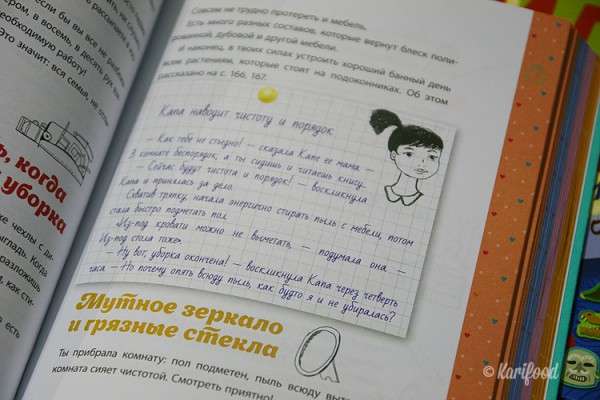 если бы вы все не разбег
ером, в восемь, в десять рук
необходимую работу!
Это значит: вся семья, не
ь, когда
уборка
чехлы с ди-
выгладь. Когда
разложишь
как сти-
есть
Совсем не трудно протереть и мебель.
Есть много разных составов, которые вернут блеск поли-
рованной, дубовой и другой мебели.
И наконец, в твоих силах устроить хороший банный день
всем растениям, которые стоят на подоконниках. Об этом
рассказано на с. 166, 167.
Капа наводит чистоту и порядок
— Как тебе не стыдно! — сказала Капе ее мама —
В комнате беспорядок, а ты сидишь и читаешь книгу.
— Сейчас будут чистота и порядок! — воскликнула
Капа и принялась за дело.
Схватив тряпку, начала энергично стирать пыль с мебели, потом
стала быстро подметать пол.
«Из-под кровати можно не выметать, — подумала она. —
Из-под стола тоже».
— Ну вот, уборка окончена! — воскликнула Капа через четверть
часа — Но почему опять всюду пыль, как будто я и не убиралась?
Мутное зеркало
и грязные стекла
Ты прибрала комнату: пол подметен, пыль всюду выт
комната сияет чистотой. Смотреть приятно!
© Karifood